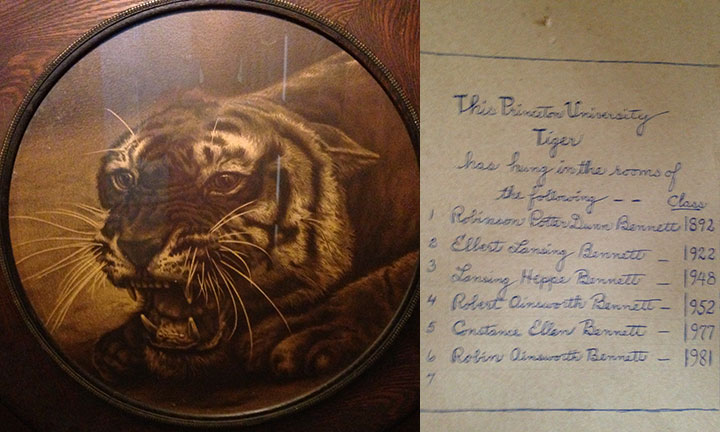 This Princeton University
Tiger
has hung in the rooms of
the following - -
Class
1 Robinson Potter Dunn Bennett 1892
2 Elbert Lansing Bennett - 1922
3 Lansing Heppe Bennett - 1948
4 Robert Ainsworth Bennett - 1952
5 Constance Ellen Bennett - 1977
6 Robin Ainsworth Bennett - 1981
7